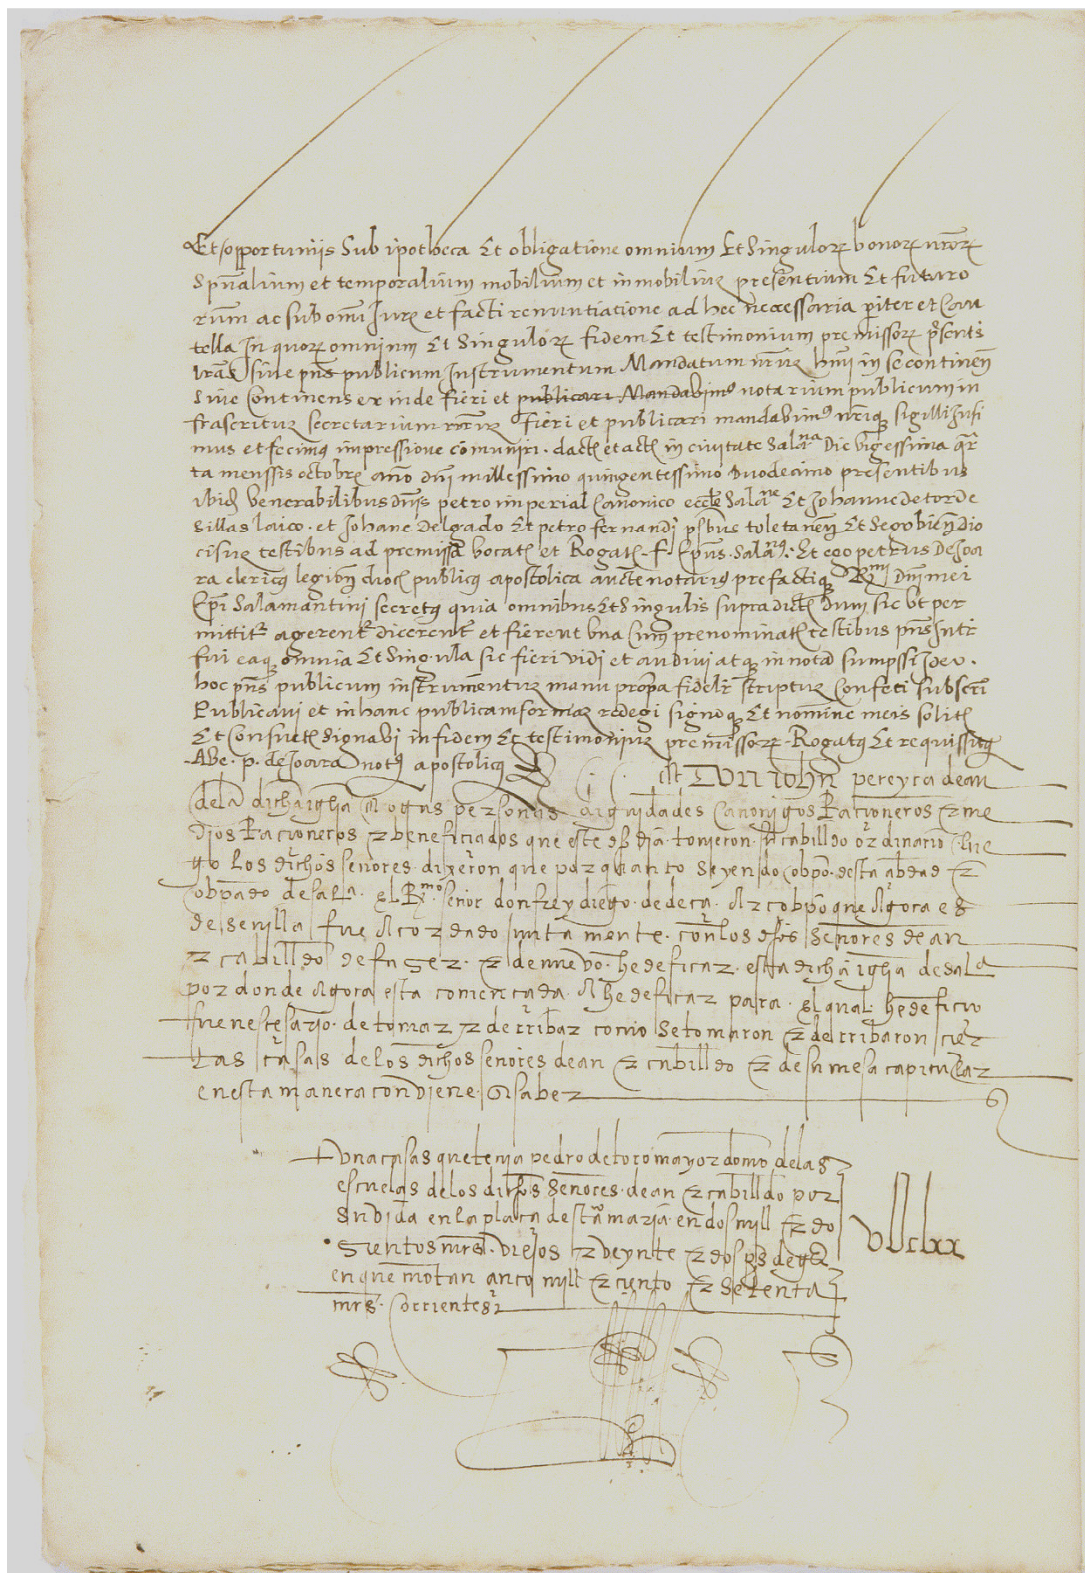 Et opportuniis Sub ipotheca Et obligatione omnium Et Singulorum bonorum nrorum
Spualium et temporalium mobilium et inmobilium presentium Et futuro
rum ac sub omni Jure et facti renuntiatione ad hec necessaria pariter et Cau
tella In quorum omnium Et Singulorum fidem Et testimonium premissorum psentis
sive pns publicum Instrumentum Mandatum nrum hmoi in se continen
Sive Continens ex inde fieri et publicari Mandabimus notarium publicum in
frascritum secretarium nrum fieri et publicari mandabimus nrique sigilli Jusi
mus et fecimus impressione comuniri. dact et act in civitate Salana Die vigessima qr
ta menssis octobre ano dni millessimo quingentessimo Duodecimo presentibus
ibid venerabilibus dnis petro imperial Canonico eccle Salane Et Johanne de torde
Sillas laico. et Johane Delgado Et petro fernandj psbus toletanen Et Segobien dio
cisum testibus ad premissa vocat et Rogat. f. Epus. Salanus. Et ego petrus De Joa
ra clericus legion dioc publicus apostolica aucte notarius prefactique Rmi Dni mei
Epi Salamantini secretus quia omnibus Et Singulis supradict Dum sic ut per
mittitr agerent dicerent et fierent Vna Cum prenominat testibus pns Intr
fui eaque omnia Et Singula sic fieri vidj et audivj atque in nota sumpssi Ideo.
hoc pns publicum instrumentum manu propa fidelr scriptum Confeci Subscri
Publicavi et in hanc publicam formam redegi signoque Et nomine meis solit
Et Consuet Signavj in fidem Et testimonium premissorum. Rogatus Et requissitus
Abe. p. de Joara notus apostolicus Don iohn pereyra dean
dela dicha iglia A otras personas dignidades Canonigos Racioneros E me
dios Racioneros E beneficiados que este dho dia. tovieron. su cabilldo ordinario luc
go los dichos señores. dixeron que por quanto Seyendo obpo. desta abdad E
obpado de sala. el Rmo. señor don frey diego. de deca. Arcobpo que Agora es
de sevylla fue Acordado iunta mente. con los dhos señores dean
E cabilldo de faser. E de nuevo. hedeficar. esta dicha iglia de sala
por donde Agora esta comencada. A hedeficar para. el qual. hedeficio
fue nescesario. de tomar E derribar como se tomaron E derribaron cier
tas casas de los dichos señores dean E cabilldo E de su mesa capitular
en esta manera condiene. A saber
Vna casas que tenia pedro de toro mayordomo de las
escuelas de los dichos señores. dean E cabilldo por
su vida en la placa de sta maria. en dos mill E do
sientos mrs. viejos E veynte E dos ps de ga
en que montan cinco mill E ciento E setenta
mrs. corrientes
VUclxx